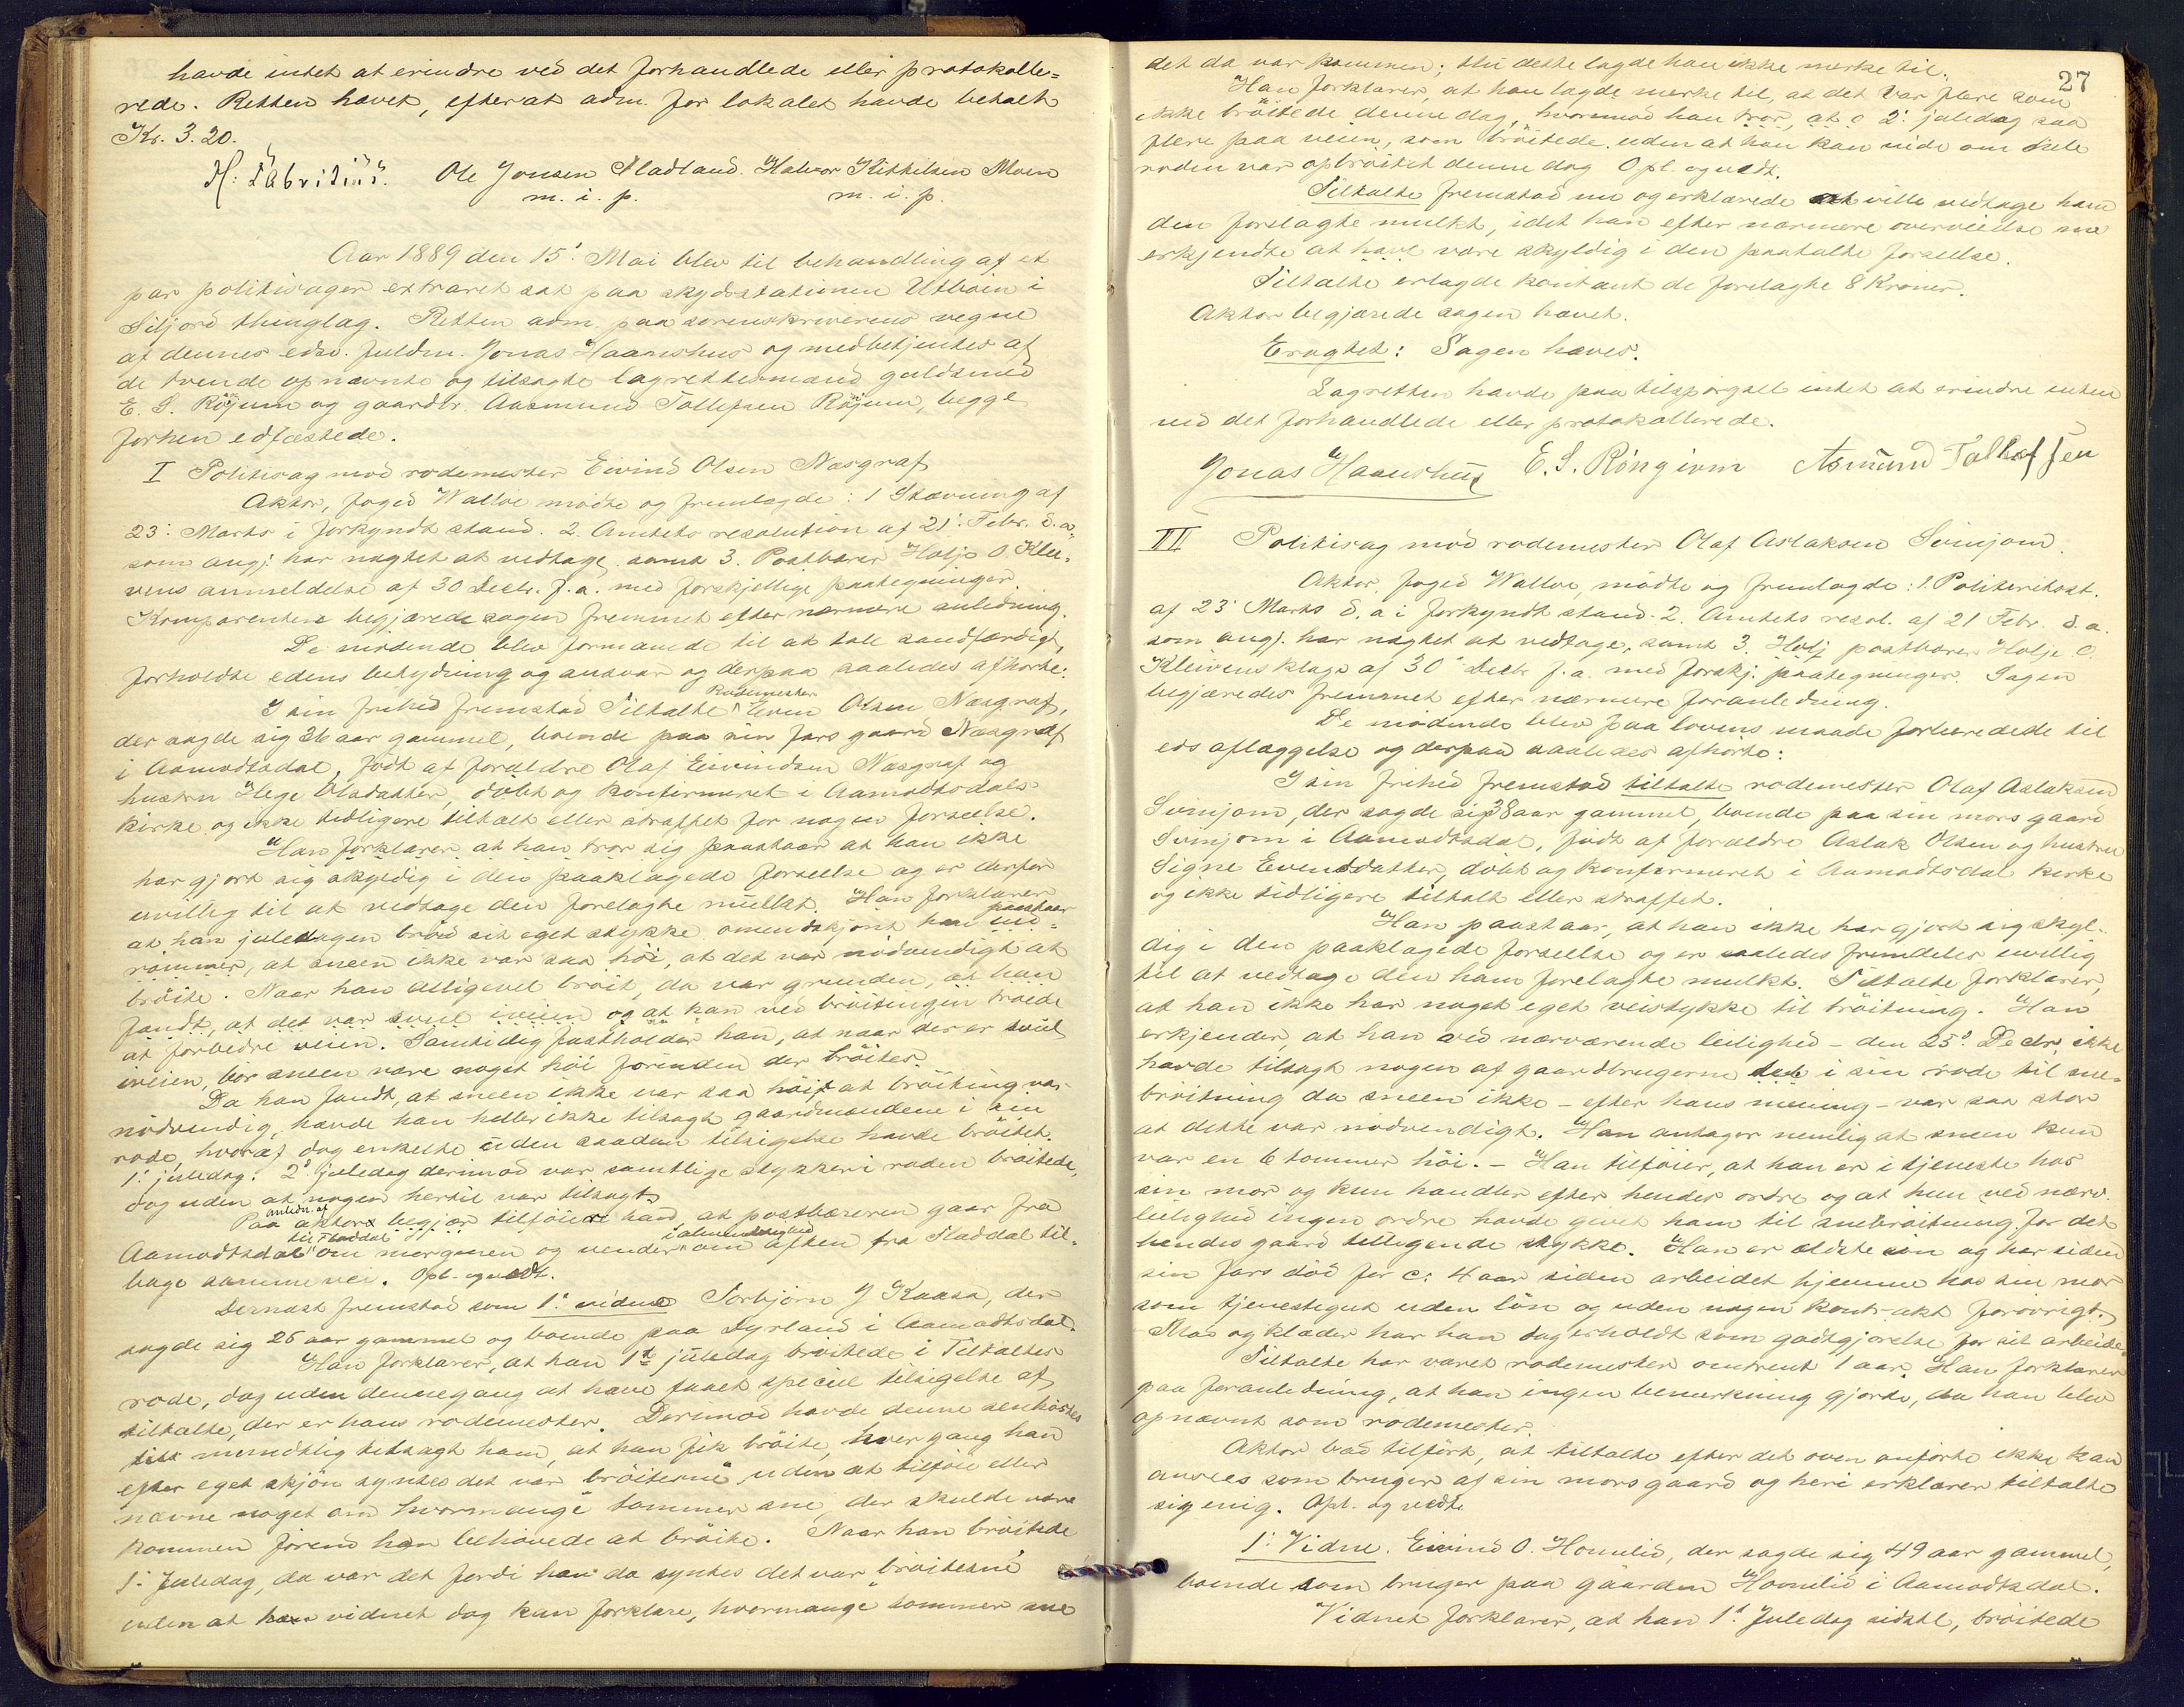 havde intet at erindre ved det forhandlede eller protokolle-
rede. Retten hævet, efter at adm. for lokalet havde betalt
Kr. 3.20.
H. Fabritius. Ole Jonsen Fladland. Halvor Kittilsen Moen
m. i. p. m. i. p.
Aar 1889 den 15' Mai blev til behandling af et
par politisager extraret sat paa skydsstationen Utbøen i
Siljord thinglag. Retten adm. paa sorenskriverens vegne
af dennes edsv. fuldm. Jonas Haanshus og medbetjentes af
de tvende opnævnte og tilsagte lagrettesmænd guldsmed
E. S. Røjum og gaardbr. Aasmund Tollefsen Røjum, begge
forhen edfæstede.
I Politisag mod rodemester Eivind Olsen Næsgraf
Aktor, foged Walløe mødte og fremlagde: 1 Stævning af
23' Marts i forkyndt stand. 2. Amtets resolution af 21' Febr. d. a.
som angj. har nægtet at vedtage samt 3. Postbærer Holje O. Klei-
vens anmeldelse af 30 Decbr. f. a. med forskjellige paategninger.
Komparenten begjærede sagen fremmet efter nærmere anledning.
De mødende blev formanede til at tale sandfærdigt,
forholdte edens betydning og ansvar og derpaa saaledes afhørte:
I sin frihed fremstod Tiltalte Rodemester Even Olsen Næsgraf,
der sagde sig 36 aar gammel, boende paa sin fars gaard Næsgraf
i Aamodtsdal, født af forældre Olaf Eivindsen Næsgraf og
hustru Hege Olsdatter, døbt og konfirmeret i Aamodtsdals
kirke og ikke tidligere tiltalt eller straffet for nogen forseelse.
Han forklarer at han tror sig paastaar at han ikke
har gjort sig skyldig i den paaklagede forseelse og er derfor
uvillig til at vedtage den forelagte mulkt. Han forklarer
at han juledagen brød sit eget stykke omendskjønt han paastaar ind-
rømmer, at sneen ikke var saa høi, at det var nødvendigt at
brøite. Naar han alligevel brøit, da var grunden, at han
fandt, at det var svul iveien og at han ved brøitingen troede
at forbedre veien. Samtidig fastholder han, at naar der er svul
iveien, bør sneen være noget høi forinden der brøites.
Da han fandt, at sneen ikke var saa høi at brøiting var
nødvendig, havde han heller ikke tilsagt gaardmændene i sin
rode, hvoraf dog enkelte uden saadan tilsigelse havde brøitet
1' juledag. 2' juledag derimod var samtlige stykker i roden brøitede,
dog uden at nogen hertil var tilsagt.
Paa anledn. af aktors begjær tilføier han at postbæreren gaar fra
Aamodtsdal til Fladdal om morgenen og vender i almindelighed om aften fra Fladdal til-
bage samme vei. Opl. og vedt.
Dernæst fremstod som 1' vidne Torbjørn J Kaasa, der
sagde sig 26 aar gammel og boende paa Dyrland i Aamodtsdal.
Han forklarer, at han 1ste juledag brøitede i Tiltaltes
rode, dog uden dennegang at have faaet speciel tilsigelse af
tiltalte, der er hans rodemester. Derimod havde denne senhøstes
mundtlig tilsagt ham, at han fik brøite, hver gang han
efter eget skjøn syntes det var brøitesne uden at tilføie eller
nævne noget om hvormange tommer sne, der skulde være
kommen førend han behøvede at brøite. Naar han brøitede
1' Juledag, da var det fordi han da syntes det var "brøitesne"
uden at vidnet dog kan forklare, hvormange tommer sne
27
det da var kommen; thi dette lagde han ikke mærke til.
Han forklarer, at han lagde mærke til, at det var flere som
ikke brøitede denne dag, hvorimod han tror, at o 2' juledag saa
flere paa veien, som brøitede uden at han kan vide om hele
roden var opbrøitet denne dag Opl. og vedt.
Tiltalte fremstod nu og erklærede at ville vedtage ham
den forelagte mulkt, idet han efter nærmere overveielse nu
erkjendte at have være skyldig i den paatalte forseelse.
Tiltalte erlagde kontant de forelagte 8 Kroner.
Aktor begjærede sagen hævet.
Eragtet: Sagen hæves.
Lagretten havde paa tilspørgsel intet at erindre enten
ved det forhandlede eller protokollerede.
Jonas Haanshus E. S. Røngium Asmund Tallefsen
II Politisag mod rodemester Olaf Aslaksen Svinjom.
Aktor, foged Walløe, mødte og fremlagde: 1. Politeritost.
af 23' Marts d. a i forkyndt stand. 2. Amtets resol. af 21 Febr. d. a.
som angj. har nægtet at vedtage, samt 3. Holj postbærer Holje O.
Kleivens klage af 30' Decbr f. a. med forskj. paategninger. Sagen
begjæredes fremmet efter nærmere foranledning.
De mødende blev paa lovens maade forberedede til
eds aflæggelse og derpaa saaledes afhørte:
I sin frihed fremstod tiltalte rodemester Olaf Aslaksen
Svinjom, der sagde sig 38 aar gammel, boende paa sin mors gaard
Svinjom i Aamodtsdal, født af forældre Aslak Olsen og hustru
Signe Evendsdatter, døbt og konfirmeret i Aamodtsdal kirke
og ikke tidligere tiltalt eller straffet.
Han paastaar, at han ikke har gjort sig skyl-
dig i den paaklagede forseelse og er saaledes fremdeles uvillig
til at vedtage den ham forelagte mulkt. Tiltalte forklarer,
at han ikke har noget eget veistykke til brøitning. Han
erkjender, at han ved nærværende leilighed - den 25' Decbr, ikke
havde tilsagt nogen af gaardbrugerne i sin rode til sne-
brøitning da sneen ikke - efter hans mening - var saa stor
at dette var nødvendigt. Han antager nemlig at sneen kun
var en 6 tommer høi. - Han tilføier, at han er i tjeneste hos
sin mor og kun handler efter hendes ordre og at hun ved nærv.
leilighed ingen ordre havde givet ham til snebrøitning for det
hendes gaard tilligende stykke. Han er ældste søn og har siden
sin fars død for c: 4 aar siden arbeidet hjemme hos sin mor
som tjenestegut uden løn og uden nogen kontrakt forøvrigt.
Mad og klæder har han dog erholdt som godtgjørelse for sit arbeide.
Tiltalte har været rodemester omtrent 1 aar. Han forklarer
paa foranledning, at han ingen bemærkning gjorte, da han blev
opnævnt som rodemester.
Aktor bad tilført, at tiltalte efter det oven anførte ikke kan
ansees som bruger af sin mors gaard og heri erklærer tiltalte
sig enig. Opl. og vedt.
1' Vidne. Eivind O. Homelid, der sagde sig 49 aar gammel,
boende som bruger paa gaarden Homelid i Aamodtsdal.
Vidnet forklarer, at han 1' Juledag sidstl, brøitede